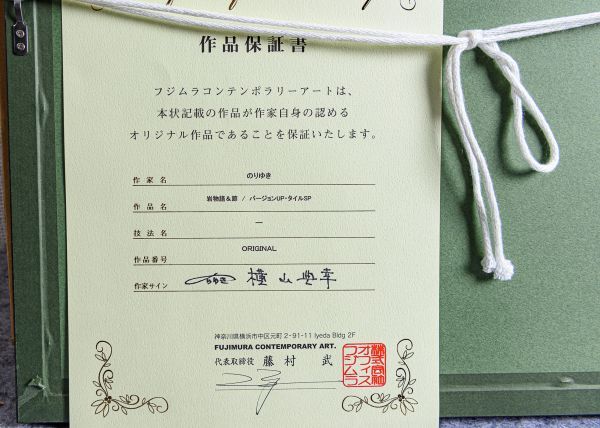 作品保証書
フジムラコンテンポラリーアートは、
本状記載の作品が作家自身の認める
オリジナル作品であることを保証いたします。
作家名 のりゆき
作品名 岩物語&節 / バージョンUP・タイルSP
技法名 ―
作品番号 ORIGINAL
作家サイン のりゆき 横山典幸
神奈川県横浜市中区元町 2-91-11 Iyeda Bldg 2F
FUJIMURA CONTEMPORARY ART.
代表取締役 藤村 武
株式会社
オフィス
フジムラ